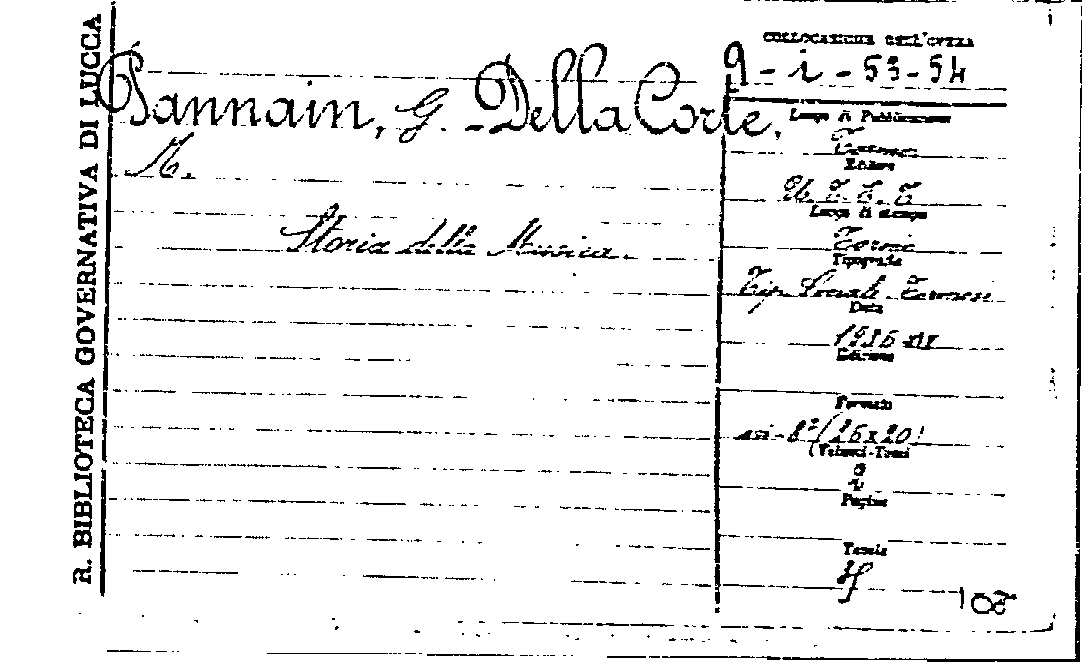 R. BIBLIOTECA GOVERNATIVA DI LUCCA
Pannain, G. - Della Corte,
A.
Storia della Musica.
COLLOCAZIONE DELL'OPERA
9 - i - 53-54
Luogo di Pubblicazione
Torino
Editore
U. T. E. T
Luogo di stampa
Torino
Tipografia
Tip. Sociale Torinese
Data
1936 XIV
Edizione
Formato
in-8º (26x20)
(Volumi-Tomi
2
Pagine
Tavole
108